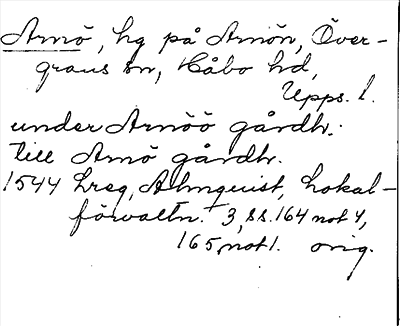 Arnö, hg på Arnön, Över-
grans sn, Håbo hd,
Upps. l.
under Arnöö gårdh.
till Arnö gårdh.
1544 Lreg, Almquist, Lokal-
förvaltn. 3, ss. 164 not 4,
165, not 1. orig.